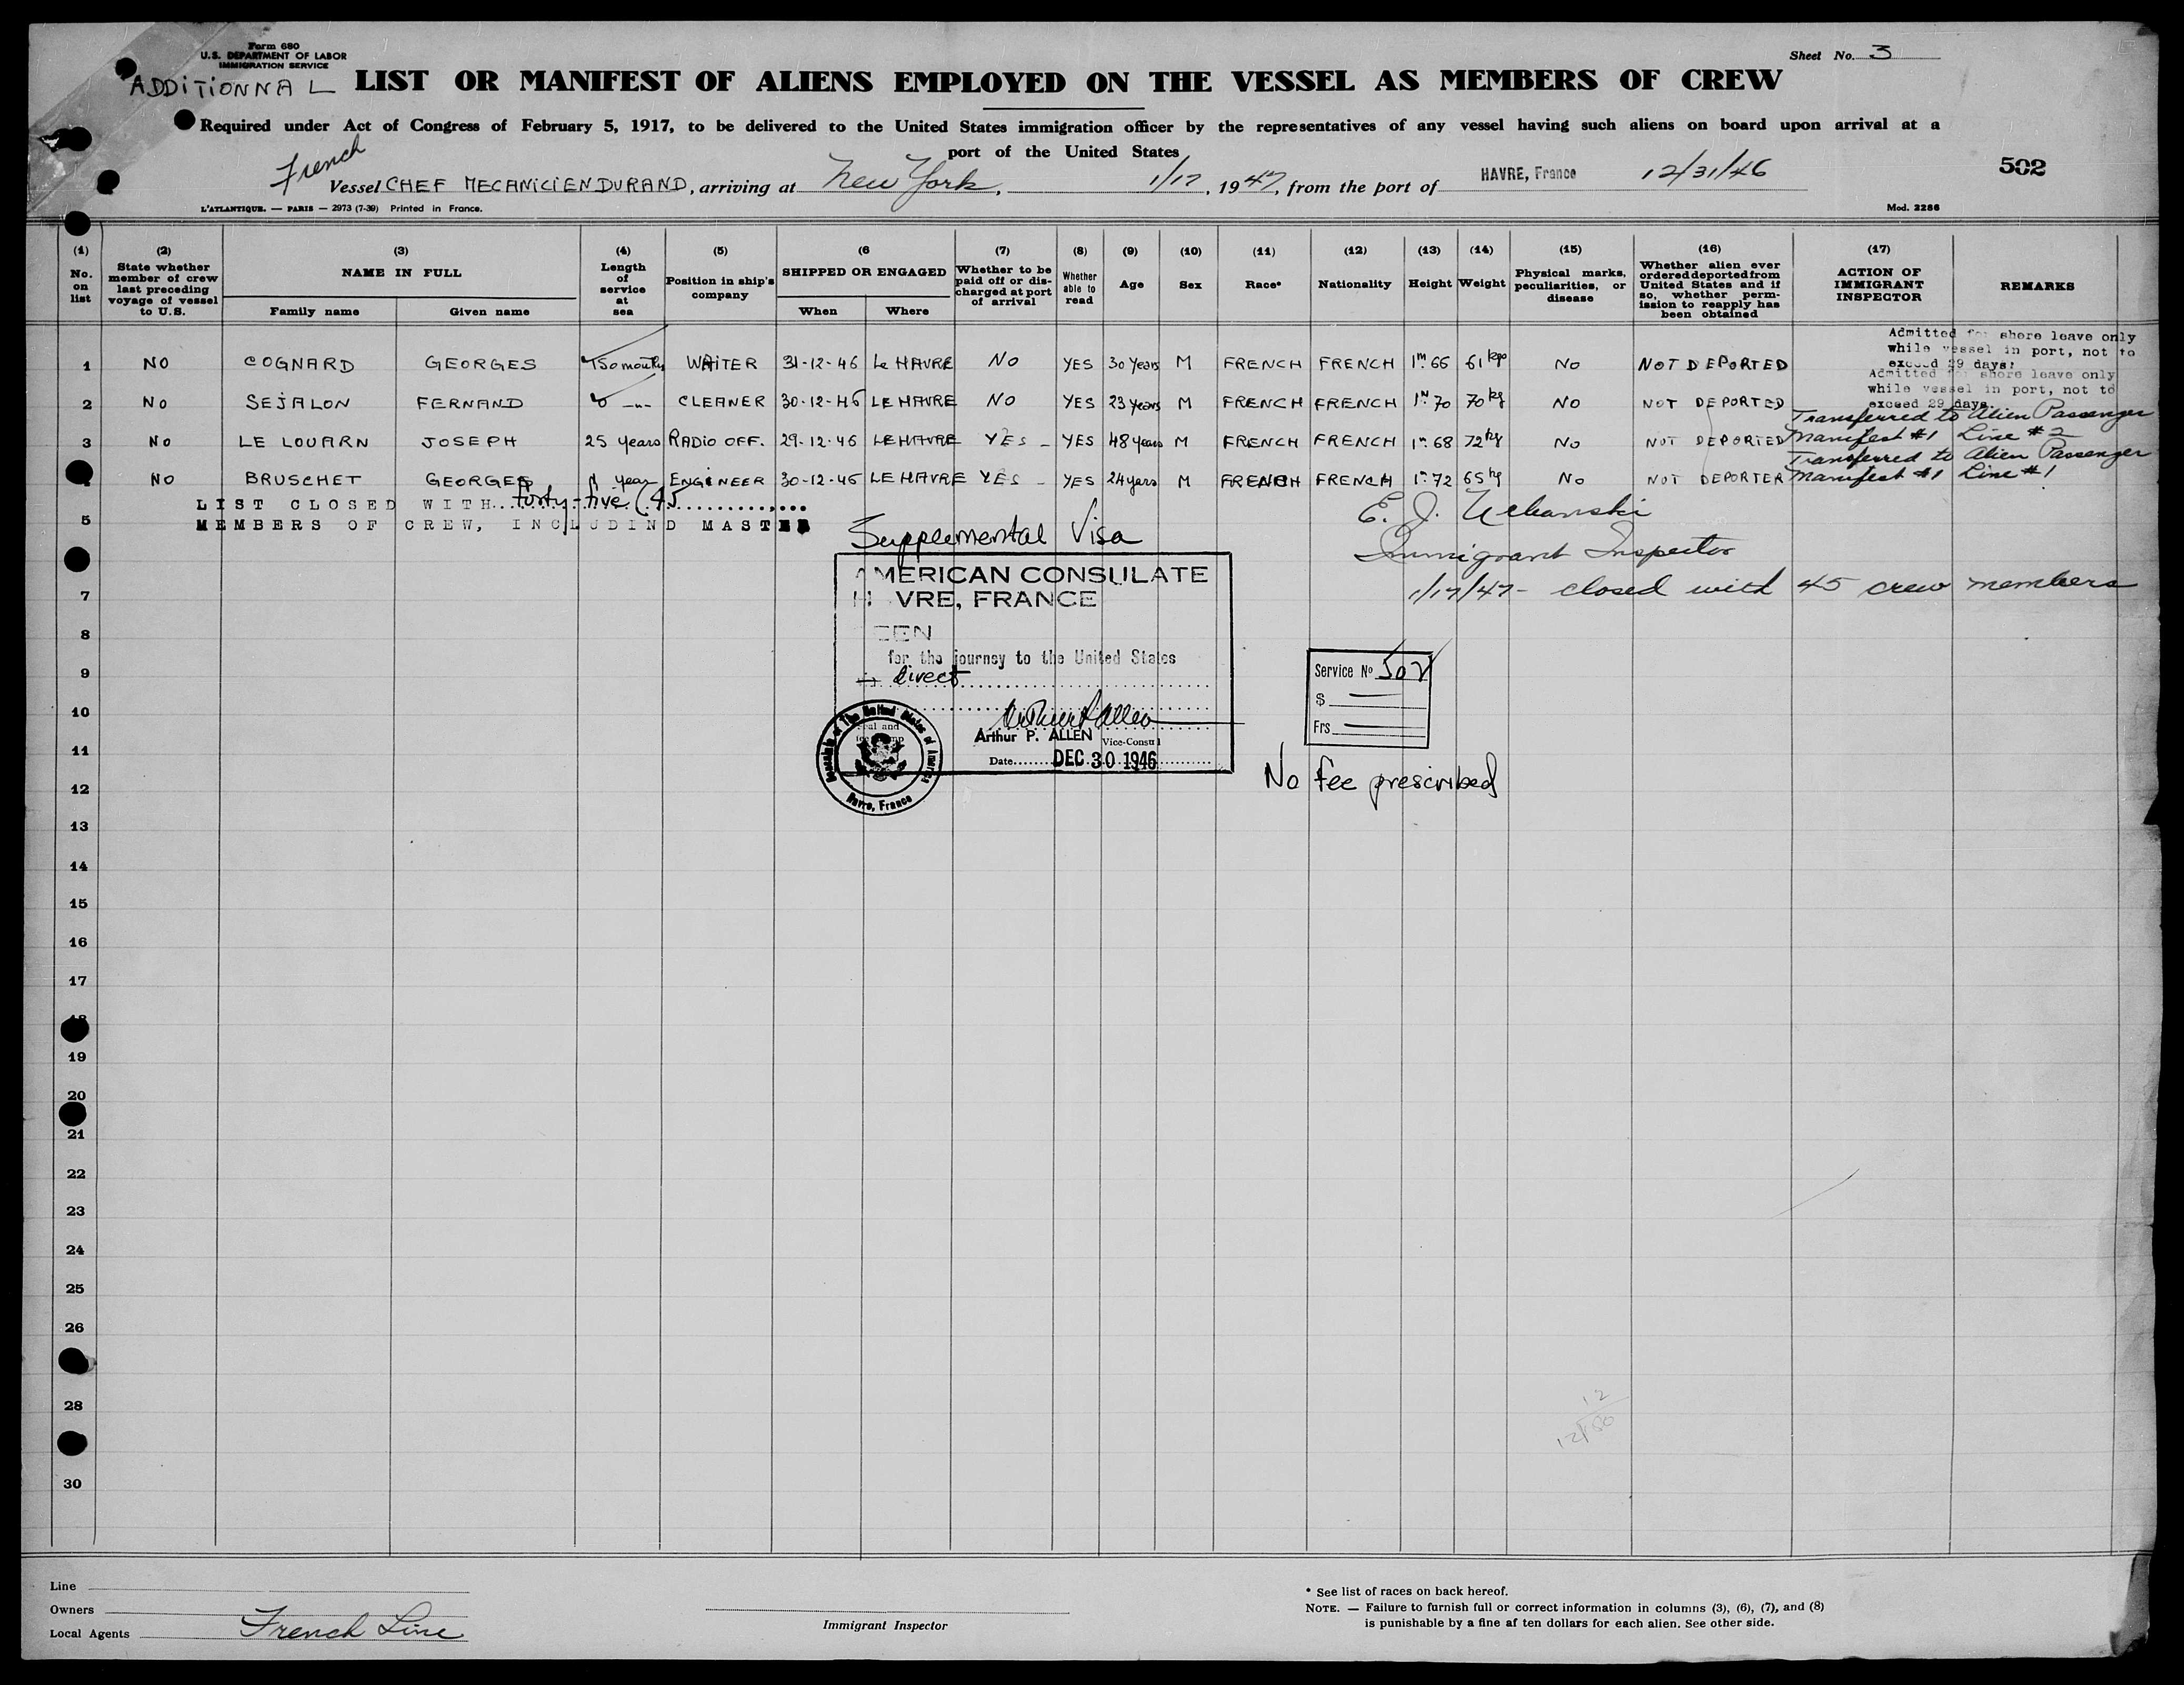 Form 680
U.S. DEPARTMENT OF LABOR
IMMIGRATION SERVICE
Sheet No. 3
ADDITIONNAL LIST OR MANIFEST OF ALIENS EMPLOYED ON THE VESSEL AS MEMBERS OF CREW
Required under Act of Congress of February 5, 1917, to be delivered to the United States immigration officer by the representatives of any vessel having such aliens on board upon arrival at a
port of the United States
502
French
Vessel CHEF MECANICIEN DURAND, arriving at New York, 1/17, 1947, from the port of HAVRE, France 12/31/46
L'ATLANTIQUE. — PARIS — 2973 (7-39) Printed in France.
Mod. 2286
(1) No. on list
(2) State whether member of crew last preceding voyage of vessel to U.S.
(3) NAME IN FULL
Family name
Given name
(4) Length of service at sea
(5) Position in ship's company
(6 SHIPPED OR ENGAGED
When
Where
(7) Whether to be paid off or discharged at port of arrival
(8) Whether able to read
(9) Age
(10) Sex
(11) Race*
(12) Nationality
(13) Height
(14) Weight
(15) Physical marks, peculiarities, or disease
(16) Whether alien ever ordered deported from United States and if so, whether permission to reapply has been obtained
(17) ACTION OF IMMIGRANT INSPECTOR
REMARKS
1 NO COGNARD GEORGES WAITER 31-12-46 Le HAVRE NO YES 30 Years M FRENCH FRENCH 1m 66 61 kgs No NOT DEPORTED Admitted for shore leave only while vessel in port, not to exceed 29 days:
2 No SEJALON FERNAND CLEANER 30-12-46 LE HAVRE NO YES 23 years M FRENCH FRENCH 1m 70 70 kg No NOT DEPORTED Admitted for shore leave only while vessel in port, not to exceed 29 days.
3 No LE LOUARN JOSEPH 25 years RADIO OFF. 29-12-46 LE HAVRE YES - YES 48 years M FRENCH FRENCH 1m 68 72 kg No NOT DEPORTED Transferred to Alien Passenger Manifest #1 Line #2
NO BRUSCHET GEORGES 1 year ENGINEER 30-12-46 LE HAVRE YES - YES 24 years M FRENCH FRENCH 1m 72 65 kg No NOT DEPORTER Transferred to Alien Passenger Manifest #1 Line #1
LIST CLOSED WITH forty-five (45
5 MEMBERS OF CREW, INCLUDIND MASTER
E. J.
Immigrant Inspector
1/17/47 - closed with 45 crew members
Supplemental Visa
AMERICAN CONSULATE
HAVRE, FRANCE
SEEN
for the journey to the United States
direct
Arthur P. Allen
Arthur P. ALLEN
Vice-Consul
Date DEC 30 1946
Consulate of The United States of America
Havre, France
Service No 502
$
Frs
No fee prescribed
7
8
9
10
11
12
13
14
15
16
17
18
19
20
21
22
23
24
25
26
28
30
12
Line
Owners
Local Agents French Line
Immigrant Inspector
* See list of races on back hereof.
NOTE. — Failure to furnish full or correct information in columns (3), (6), (7), and (8)
is punishable by a fine af ten dollars for each alien. See other side.